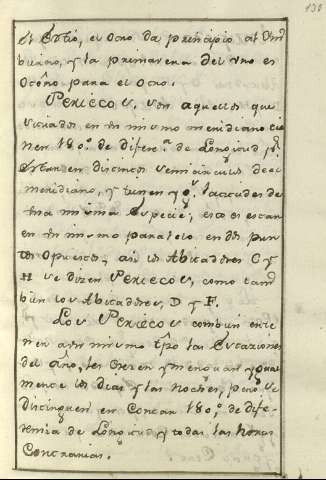 130
el Estio, el Otro da principio al Ynb
bierno, y la primavera del vno es
Otoño para el Otro.
PERIECOS, son aquellos que
situados en vn mismo meridiano tie
nen 180.º de difere.ª de Longitud pr.
estar en distintos semicirculos de el
meridiano, y tienen ygs. latitudes de
vna misma especie, esto es estan
en vn mismo paralelo en dos pun
tos opuestos, asi los Abitadores C y
H se dizen PERIECOS, como tam
bien los Abitadores, D y F.
Los PERIECOS combienen
en vn mismo tpo las Estaziones
del año, les crezen y menguan ygual
mente los dias y las noches, pero se
distinguen en contar 180.º de dife
renzia de Longitud y todas las horas
Contrarias.